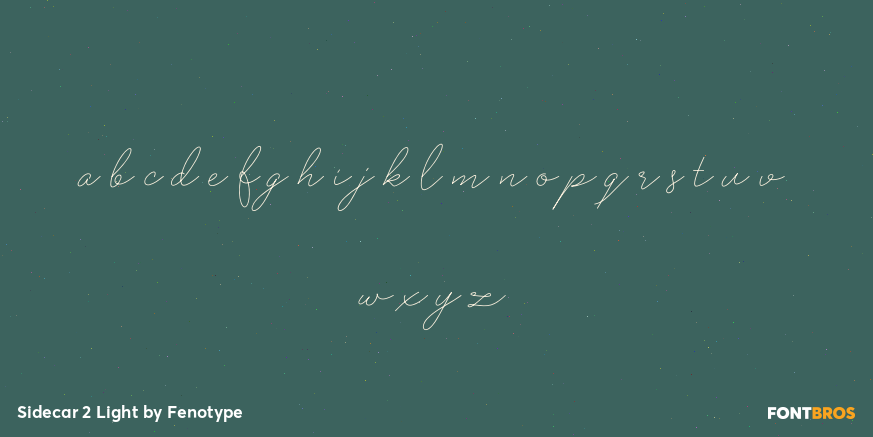 a b c d e f g h i j k l m n o p q r s t u v
w x y z
Sidecar 2 Light by Fenotype
FONTBROS